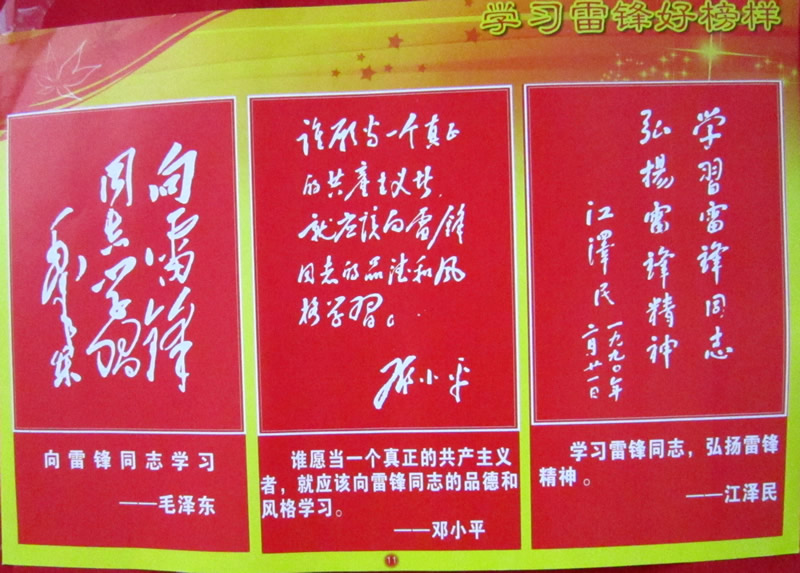 学习雷锋好榜样
向雷锋
同志学习
毛泽东
谁愿当一个真正
的共产主义者,
就应该向雷锋
同志的品德和风
格学习。
邓小平
学習雷锋同志
弘揚雷锋精神
江澤民
一九九〇年
二月廿一日
向雷锋同志学习
——毛泽东
谁愿当一个真正的共产主义
者，就应该向雷锋同志的品德和
风格学习。
——邓小平
学习雷锋同志，弘扬雷锋
精神。
——江泽民
11